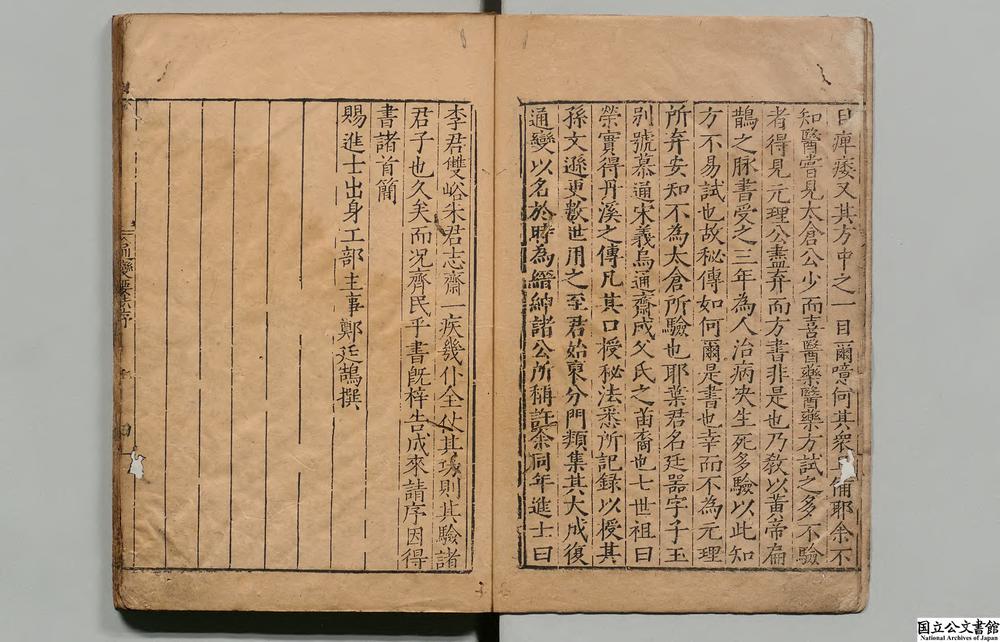 曰痺痿又其方中之一目爾噫何其衆且備耶余不
知醫嘗見太倉公少而喜醫藥醫藥方試之多不驗
者得見元理公盡弃而方書非是也乃教以黃帝扁
鵲之脉書受之三年為人治病决生死多驗以此知
方不易試也故秘傳如何爾是書也幸而不為元理
所弃安知不為太倉所驗也耶葉君名廷器字子玉
別號慕通宋義烏通齋成父氏之苗裔也七世祖曰
榮實得丹溪之傳凡其口授秘法悉所記録以授其
孫文遜更數世用之至君始東分門類集其大成復
通變以名於時為縉紳諸公所稱許余同年進士曰
李君雙峪朱君志齋一疾幾仆全以其功則其驗諸
君子也久矣而况齊民乎書旣梓告成來請序因得
書諸首簡
賜進士出身工部主事鄭廷鵠撰
国立公文書館
National Archives of Japan